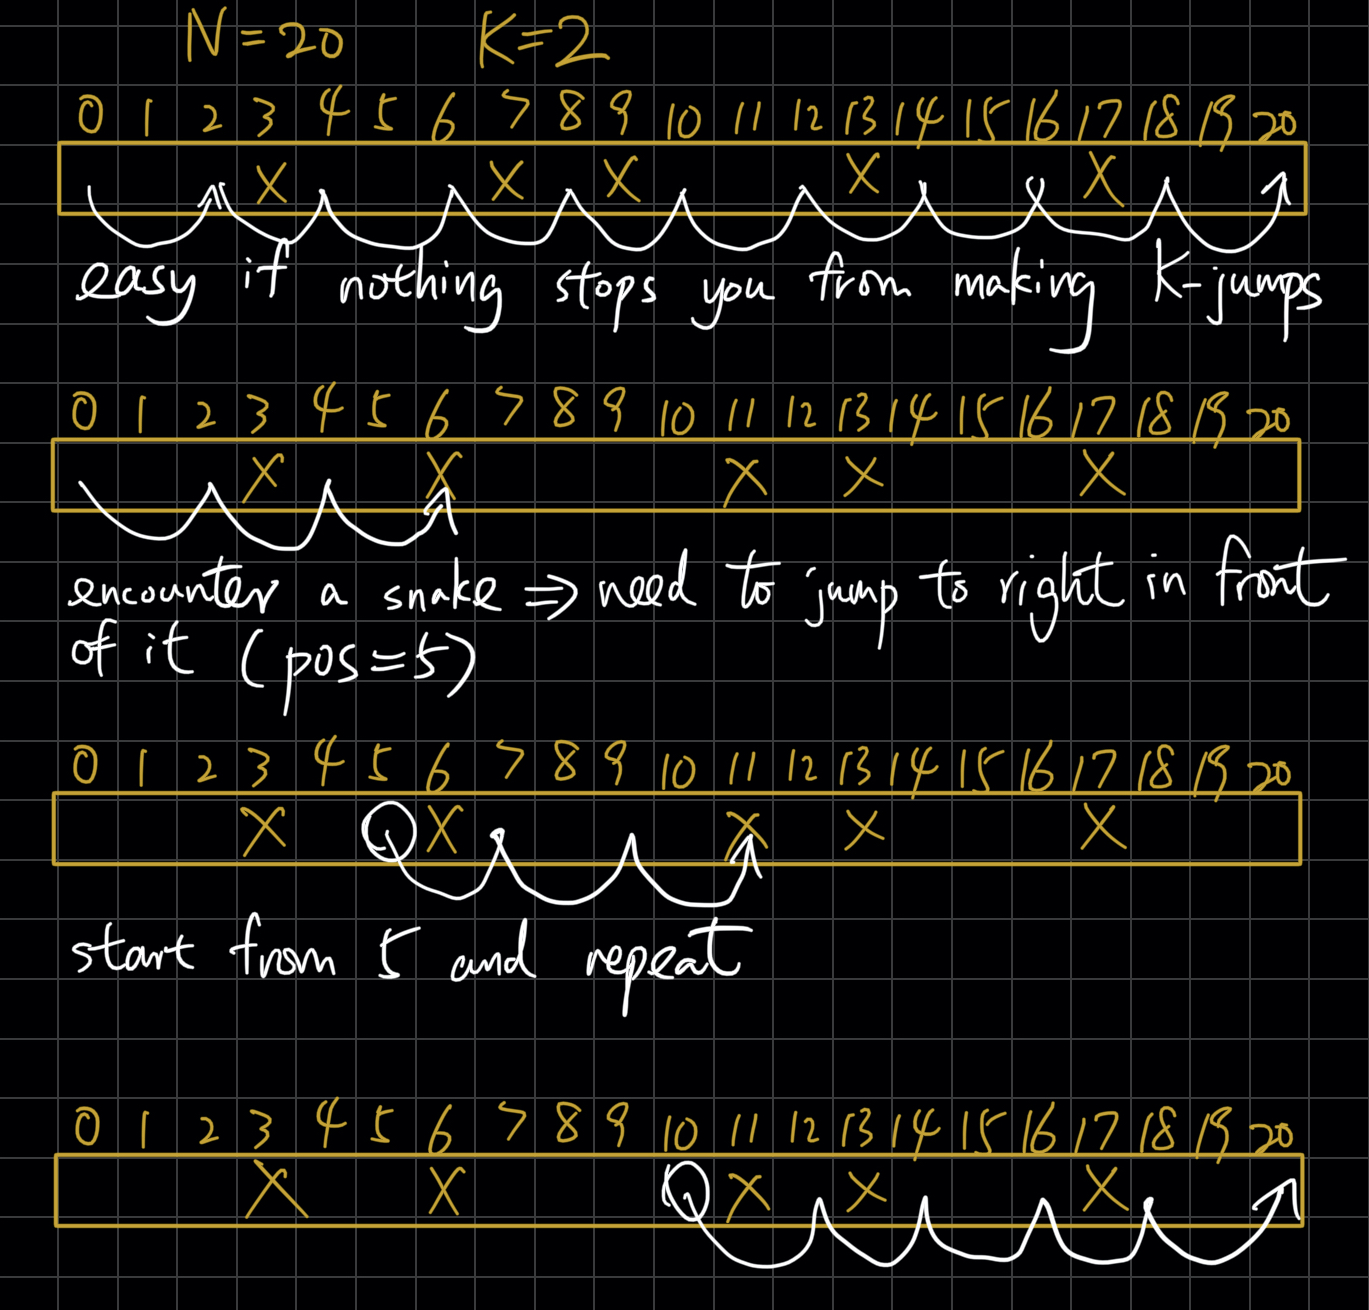 N=20 K=2
0 1 2 3 4 5 6 7 8 9 10 11 12 13 14 15 16 17 18 19 20
X X X X X
easy if nothing stops you from making K-jumps
0 1 2 3 4 5 6 7 8 9 10 11 12 13 14 15 16 17 18 19 20
X X X X X
encounter a snake => need to jump to right in front
of it (pos=5)
0 1 2 3 4 5 6 7 8 9 10 11 12 13 14 15 16 17 18 19 20
X X X X X
start from 5 and repeat
0 1 2 3 4 5 6 7 8 9 10 11 12 13 14 15 16 17 18 19 20
X X X X X